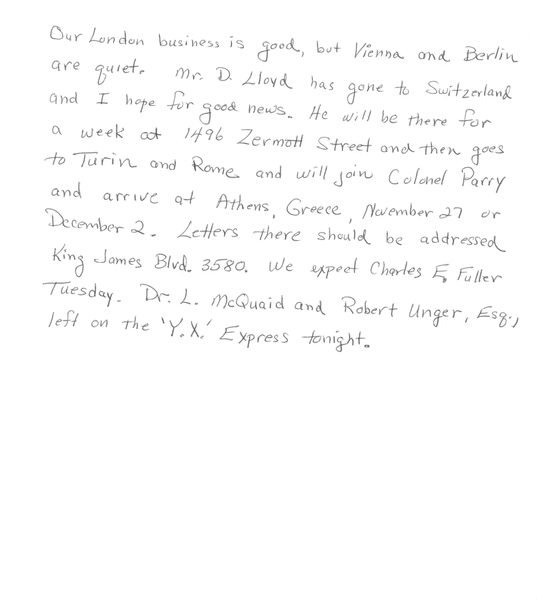 Our London business is good, but Vienna and Berlin
are quiet. Mr. D. Lloyd has gone to Switzerland
and I hope for good news. He will be there for
a week at 1496 Zermott Street and then goes
to Turin and Rome and will join Colonel Parry
and arrive at Athens, Greece, November 27 or
December 2. Letters there should be addressed
King James Blvd. 3580. We expect Charles E. Fuller
Tuesday. Dr. L. McQuaid and Robert Unger, Esq.,
left on the 'Y.X.' Express tonight.